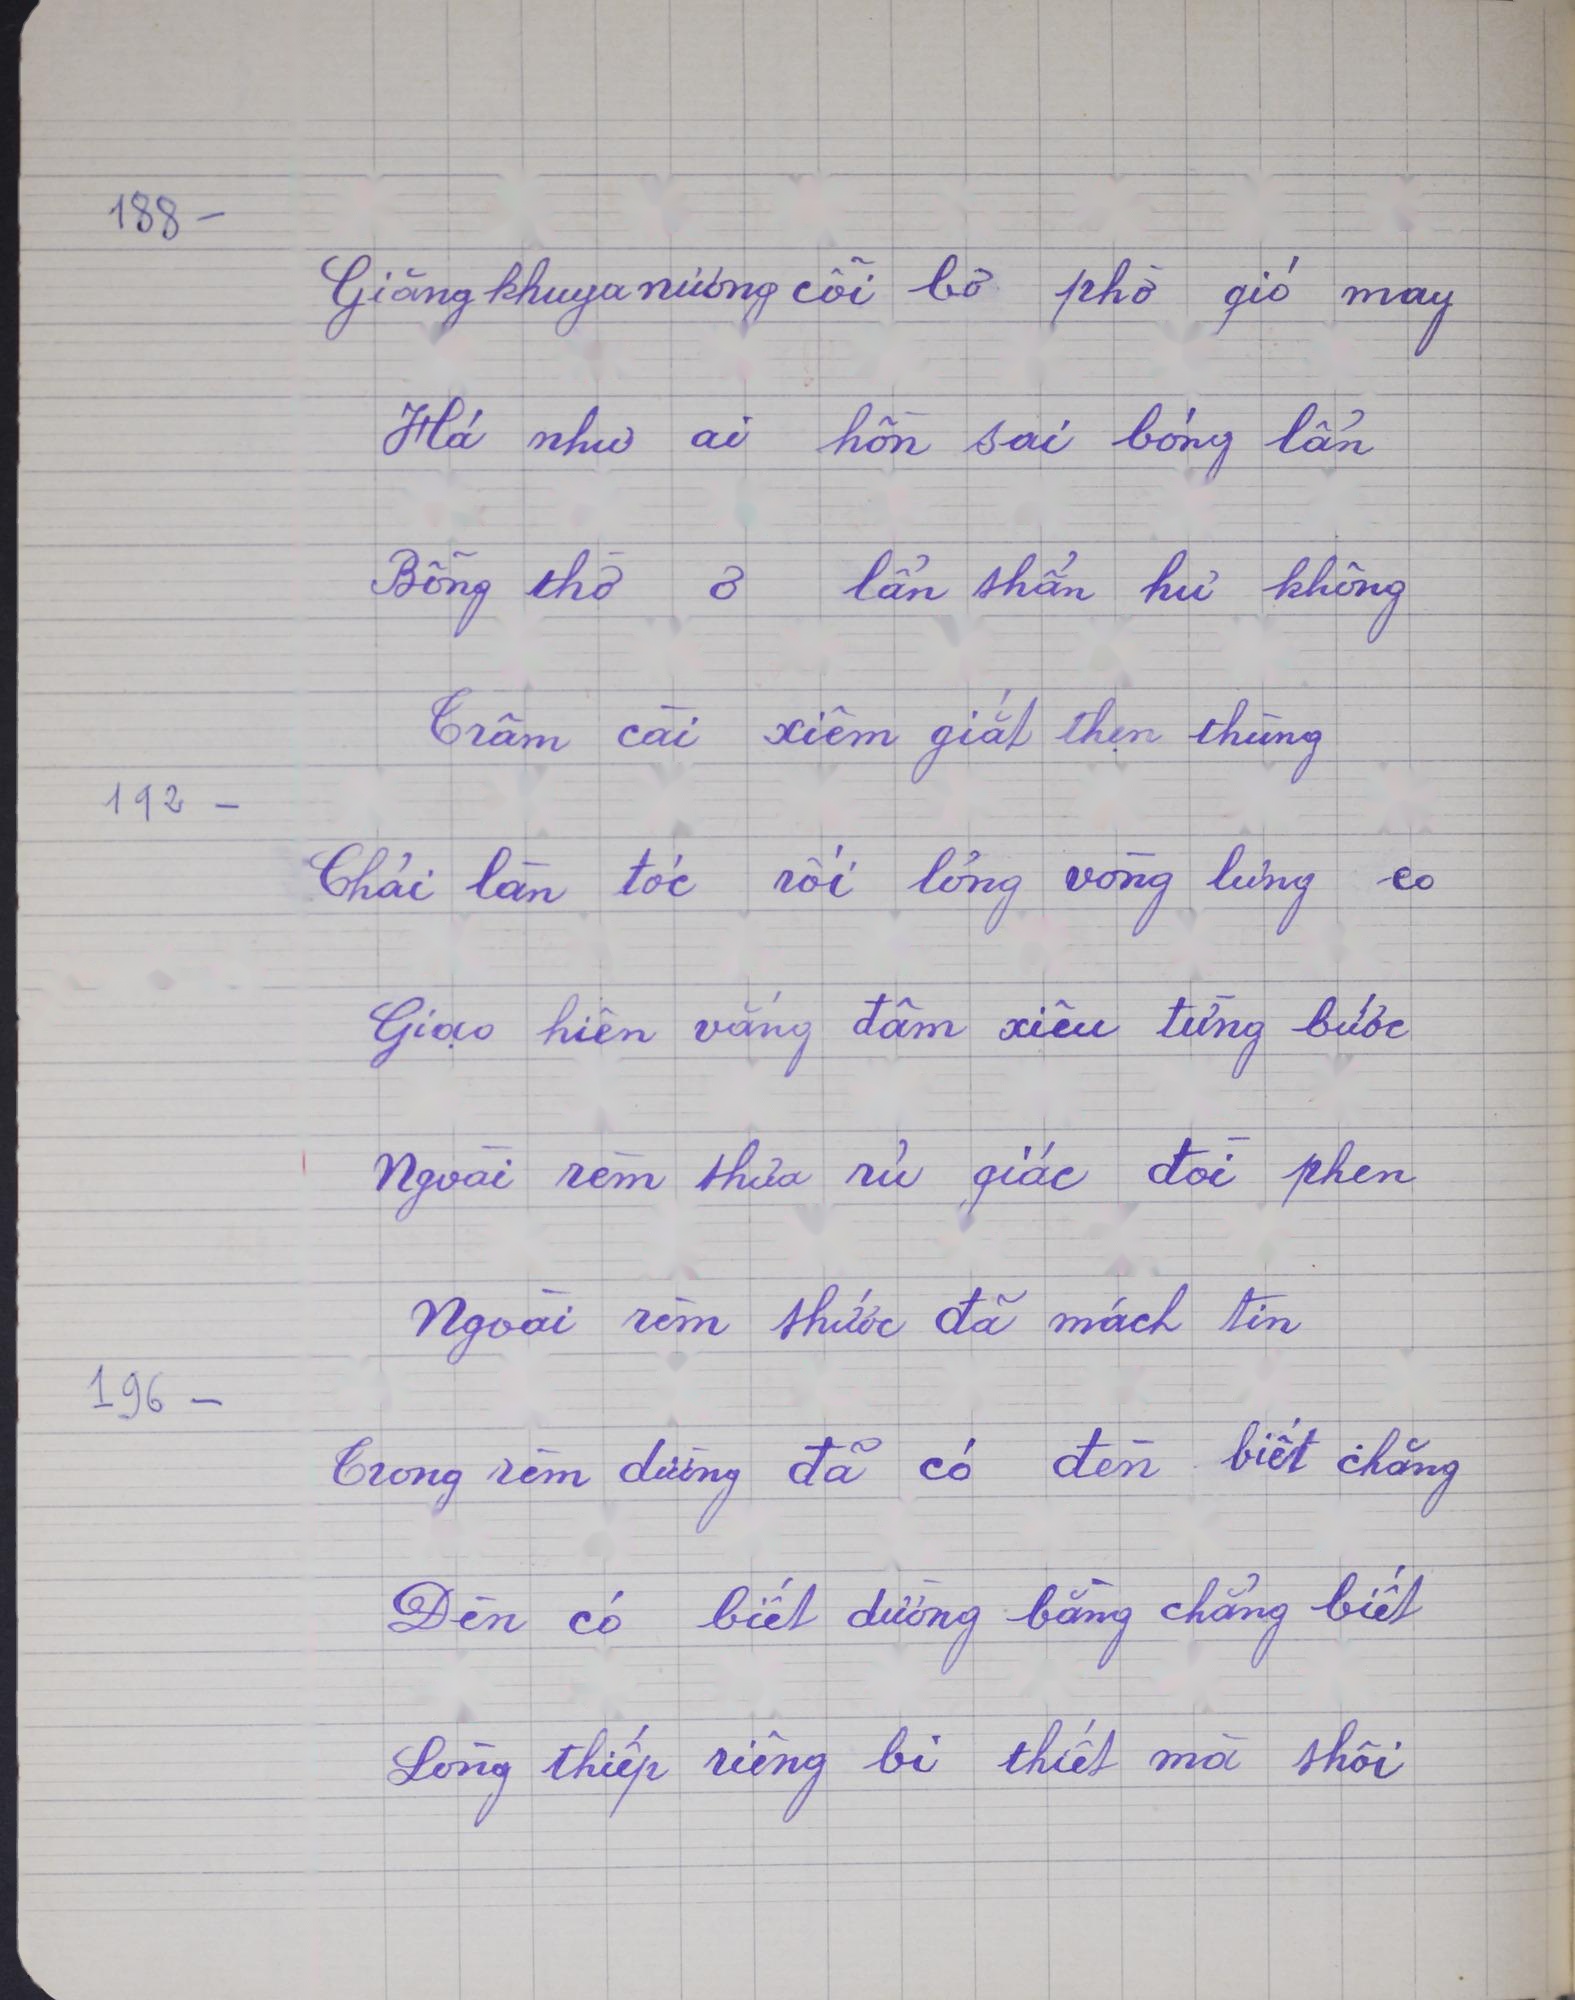 188 –
Giăng khuya nương cõi bờ phờ gió may
Há như ai hồn sai bóng lẩn
Bỗng thờ ơ lẩn thẩn hư không
Trâm cài xiêm giắt thẹn thùng
192 –
Chải làn tóc rối lỏng vòng lưng eo
Giạo hiên vắng đâm xiêu từng bước
Ngoài rèm thưa rủ giác đòi phen
Ngoài rèm thước đã mách tin
196 –
Trong rèm dường đã có đèn biết chăng
Đèn có biết dường bằng chẳng biết
Lòng thiếp riêng bi thiết mà thôi